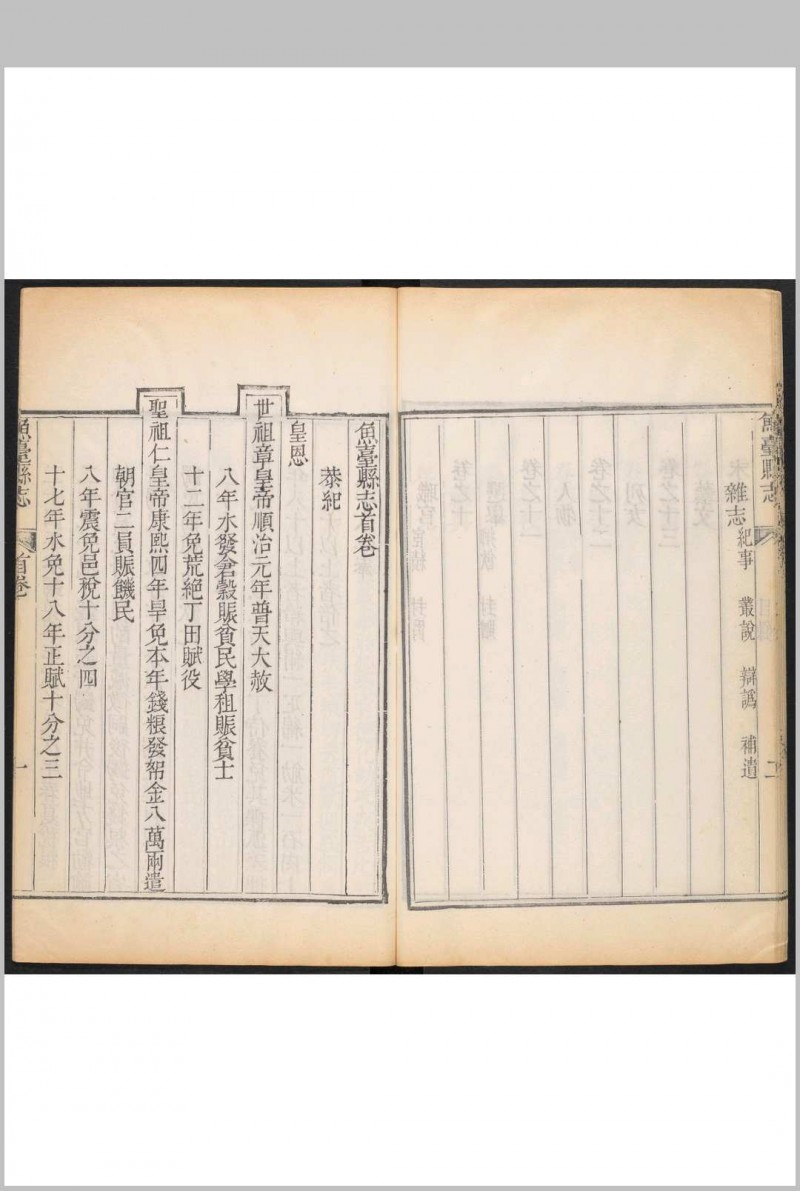 魚臺縣志
二
雜志 紀事 叢說 辯譌 補遺
魚臺縣志首卷
恭紀
皇恩
世祖章皇帝順治元年普天大赦
八年水發倉穀賑貧民學租賑貧士
十二年免荒絶丁田賦役
聖祖仁皇帝康熙四年旱免本年錢粮發帑金八萬兩遣
朝官二員賑饑民
八年震免邑稅十分之四
十七年水免十八年正賦十分之三
魚臺縣志 首卷 一